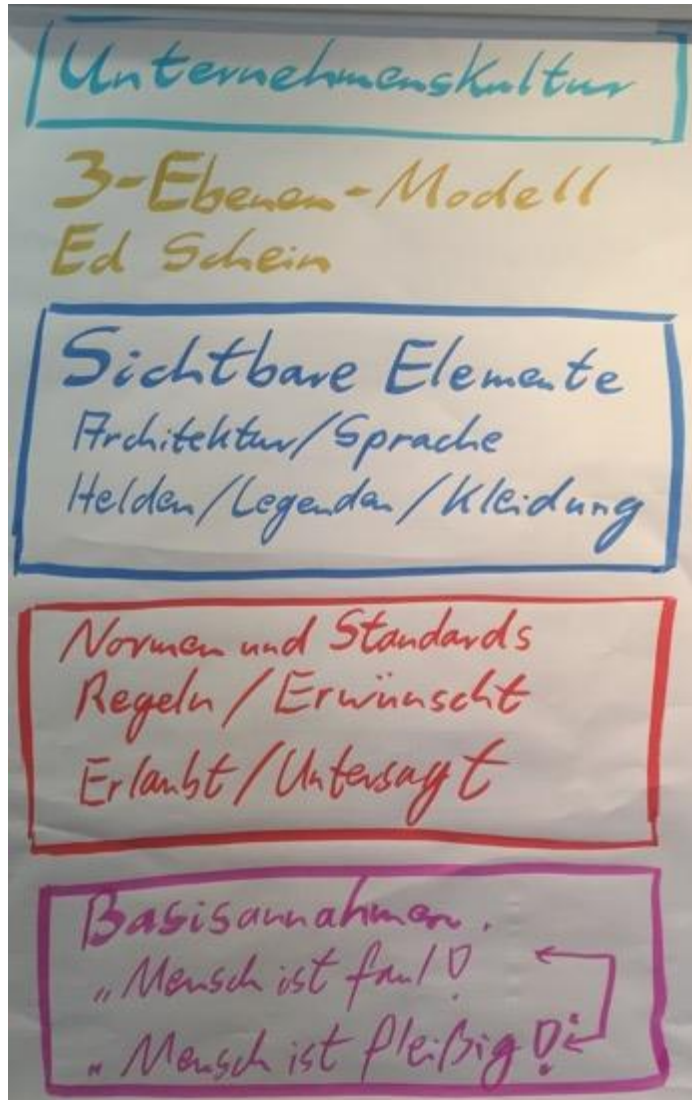 Unternehmenskultur
3-Ebenen-Modell
Ed Schein
Sichtbare Elemente
Architektur/Sprache
Helden/Legenden/Kleidung
Normen und Standards
Regeln/Erwünscht
Erlaubt/Untersagt
Basisannahmen.
„Mensch ist faul!
„Mensch ist fleißig!"